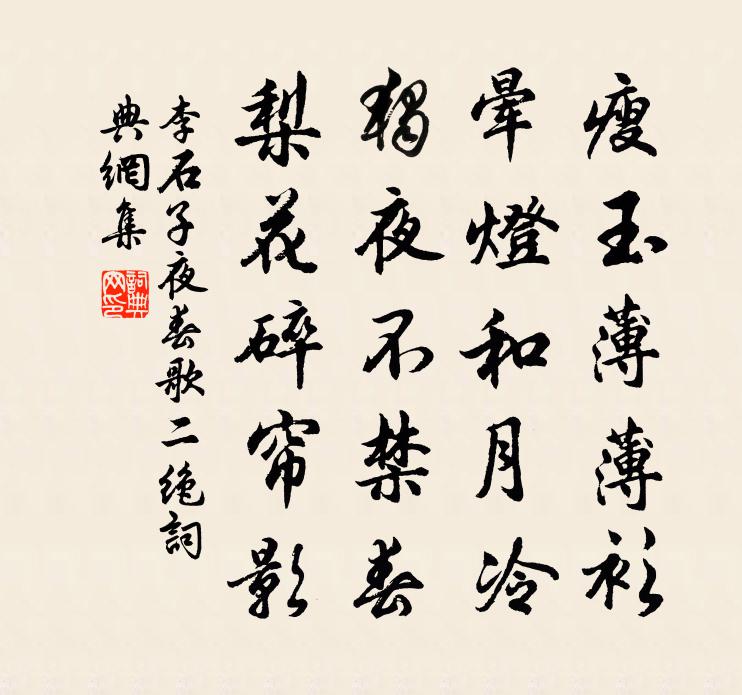 瘦玉薄薄衫
暈燈和月冷
獨夜不禁春
梨花碎帘影
李石子夜春歌二絶詞
典網集
詞典網印